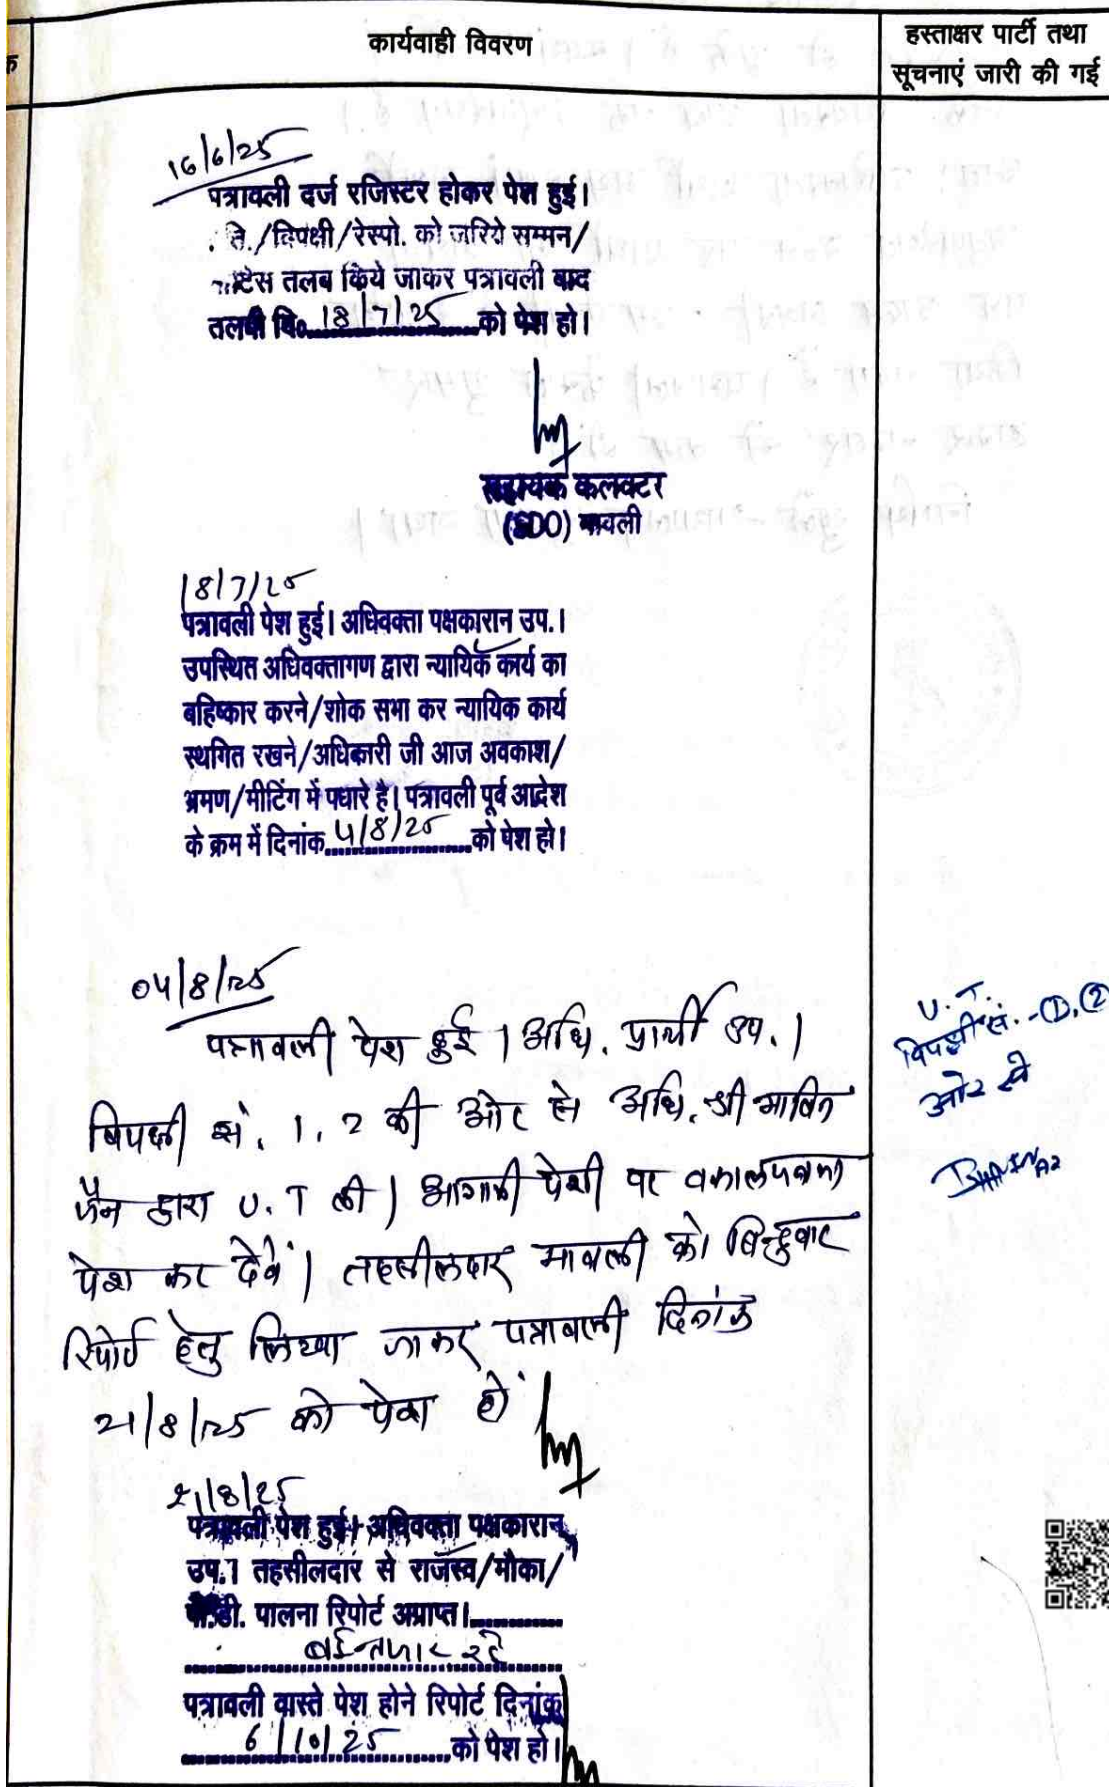 कार्यवाही विवरण
हस्ताक्षर पार्टी तथा
सूचनाएं जारी की गई
16/6/25
पत्रावली दर्ज रजिस्टर होकर पेश हुई।
ति./विपक्षी/रेस्पो. को जरिये सम्मन/
टिस तलब किये जाकर पत्रावली बाद
तलबी दि० 18/7/25 को पेश हो।
सहायक कलक्टर
(SDO) मावली
18/7/25
पत्रावली पेश हुई। अधिवक्ता पक्षकारान उप.।
उपस्थित अधिवक्तागण द्वारा न्यायिक कार्य का
बहिष्कार करने/शोक सभा कर न्यायिक कार्य
स्थगित रखने/अधिकारी जी आज अवकाश/
भ्रमण/मीटिंग में पधारे है। पत्रावली पूर्व आदेश
के क्रम में दिनांक 4/8/25 को पेश हो।
04/8/25
पत्रावली पेश हुई। अधि. प्रार्थी उप.।
विपक्षी सं. 1, 2 की ओर से अधि. श्री भाविन
जैन द्वारा U.T ली। आगामी पेशी पर वकालतनामा
पेश कर देवें। तहसीलदार मावली को बिन्दुवार
रिपोर्ट हेतु लिखा जाकर पत्रावली दिनांक
21/8/25 को पेश हो
U.T.
विपक्षी सं. - ①, ②
ओर से
21/8/25
पत्रावली पेश हुई। अधिवक्ता पक्षकारान
उप.। तहसीलदार से राजस्व/मौका/
पी.डी. पालना रिपोर्ट अप्राप्त।
इन्तजार रहे
पत्रावली वास्ते पेश होने रिपोर्ट दिनांक
6/10/25 को पेश हो।